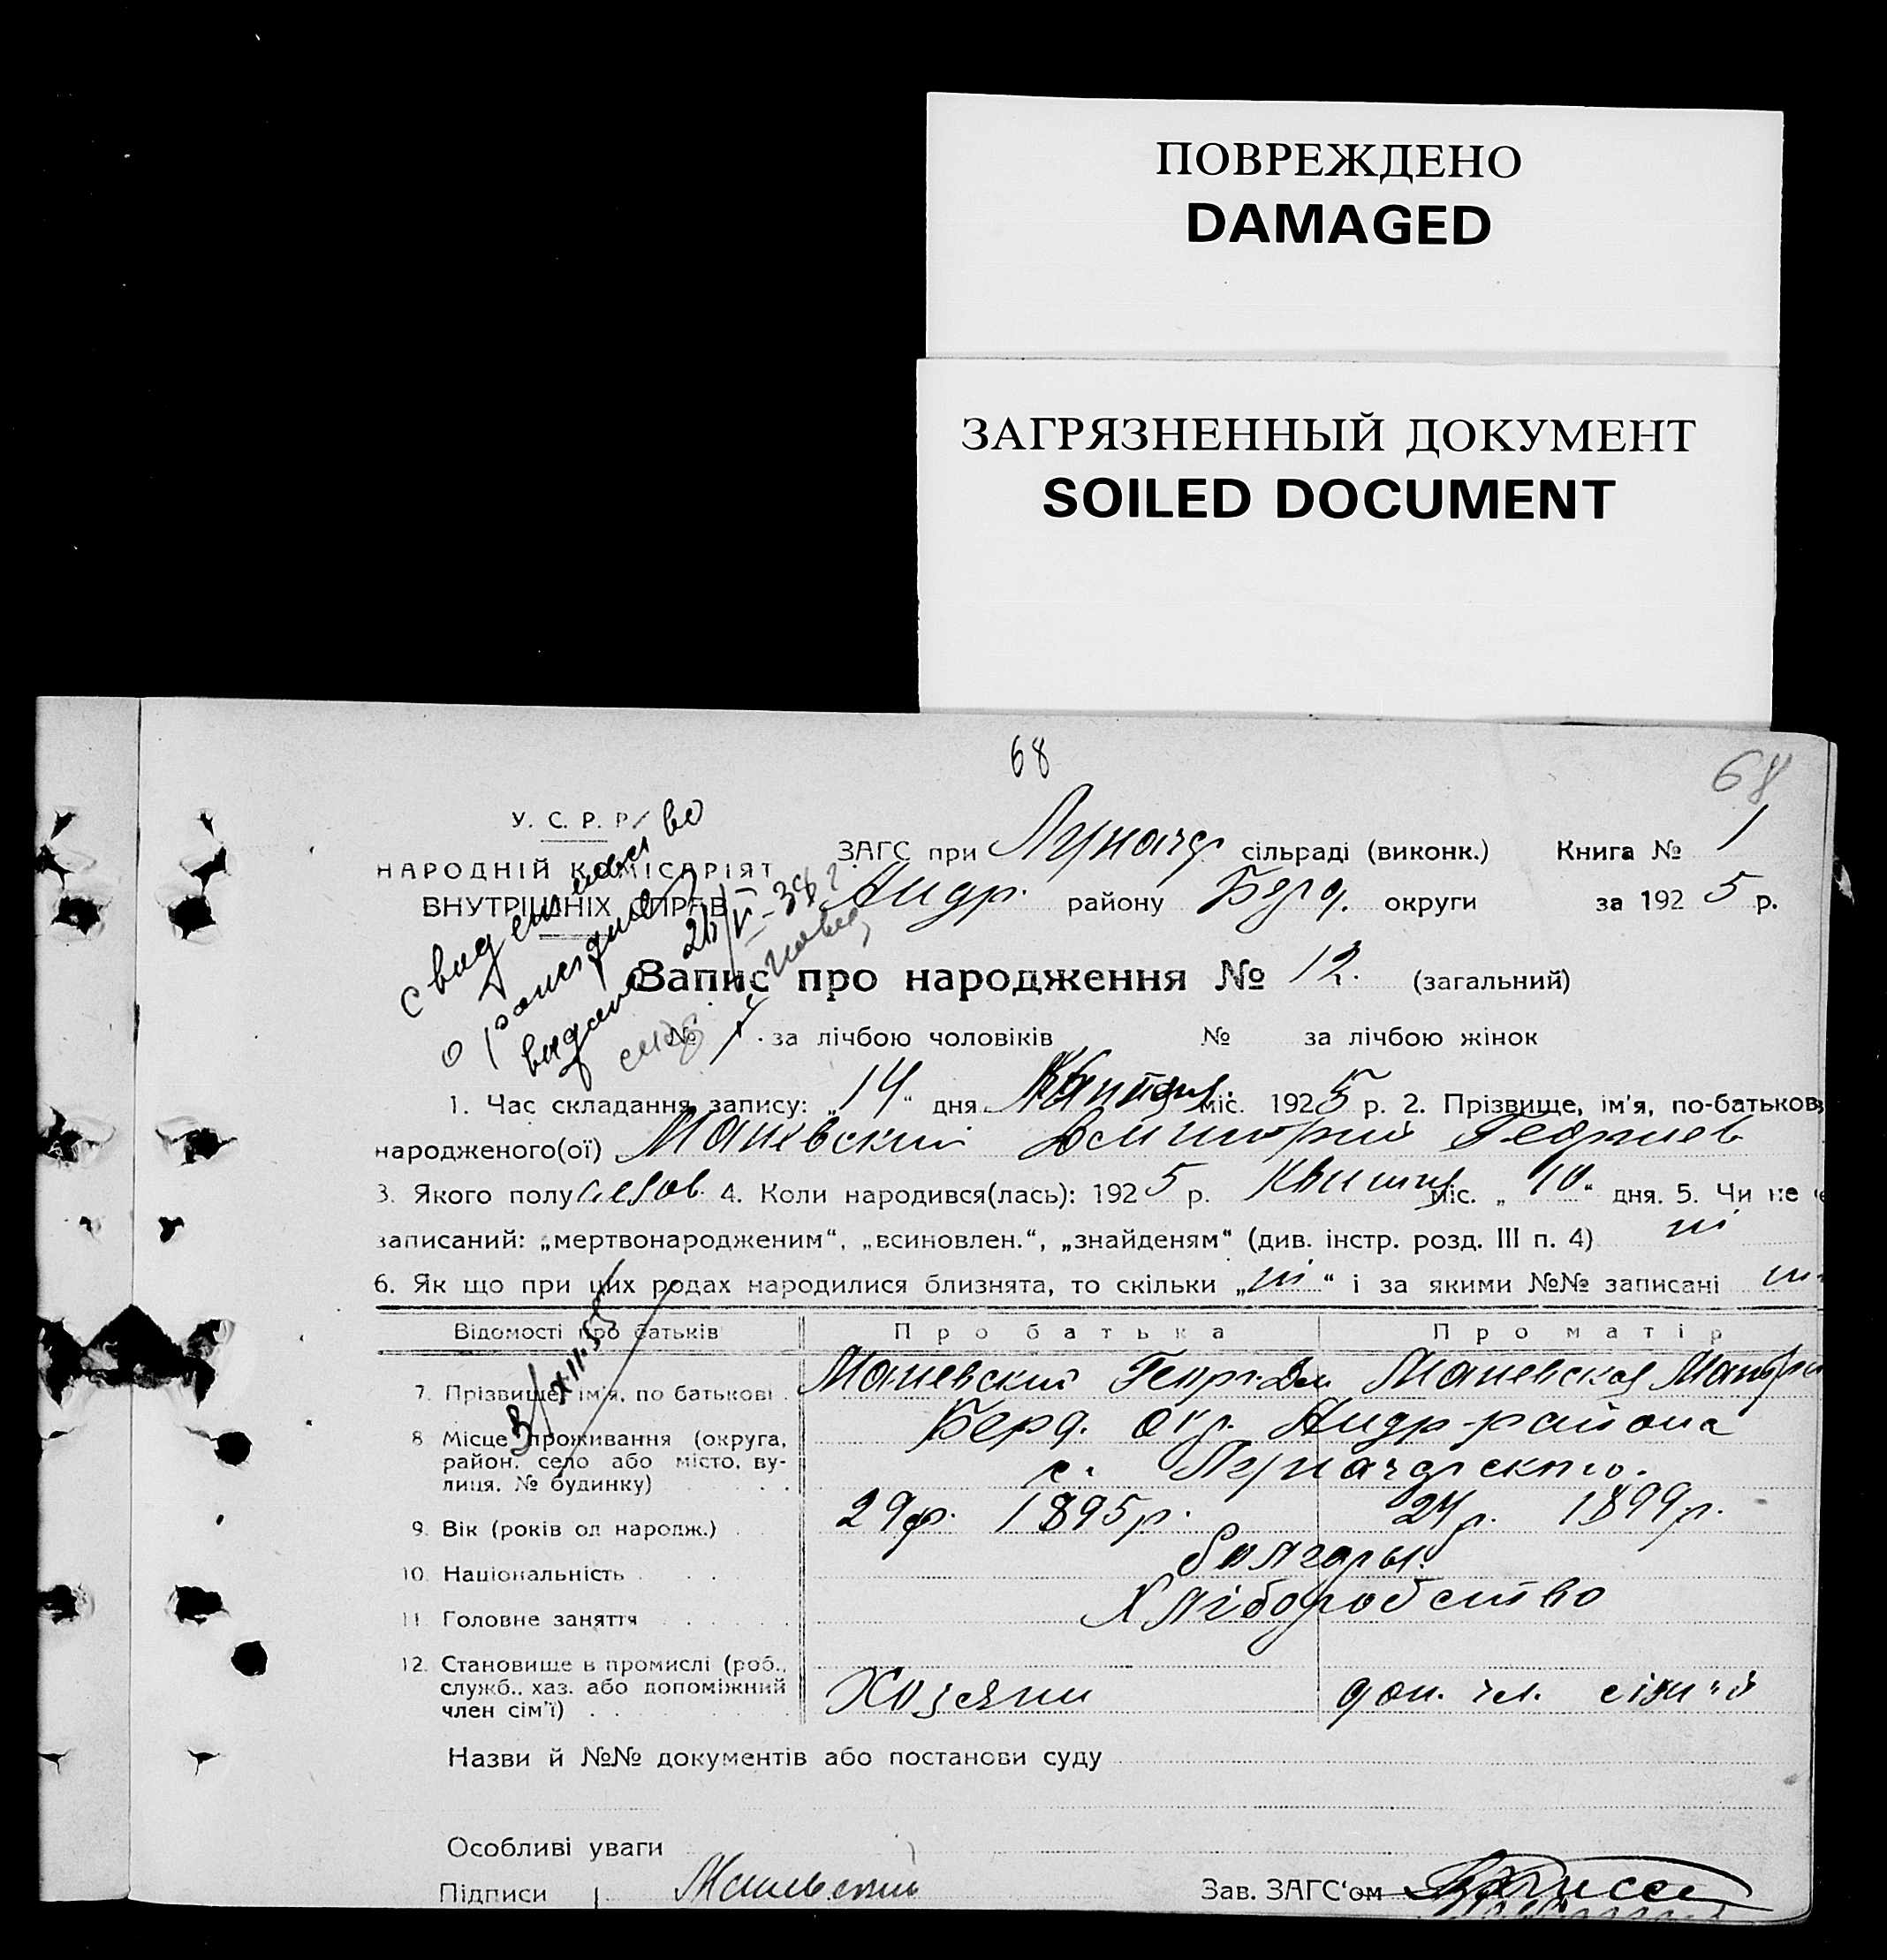 ПОВРЕЖДЕНО
DAMAGED
ЗАГРЯЗНЕННЫЙ ДОКУМЕНТ
SOILED DOCUMENT
68
68
У. С. Р. Р.
НАРОДНІЙ КОМІСАРІЯТ
ВНУТРІШНІХ СПРАВ
свидетельство
о рождении
выдано 26/V-38 г.
ЗАГС при сільраді (виконк.) Книга № 1
Андр. району Берд. округи за 1925 р.
Запис про народження № 12. (загальний)
№ 7 за лічбою чоловіків № за лічбою жінок
1. Час складання запису: „14" дня міс. 1925 р. 2. Прізвище, ім'я, по-батьков
народженого(ої) Маневский Димитрий Георгиев
3. Якого полу 4. Коли народився(лась): 1925 р. Квітня міс. „10" дня. 5. Чи не є
записаний: „мертвонародженим", „всиновлен.", „знайденям" (див. інстр. розд. III п. 4) ні
6. Як що при цих родах народилися близнята, то скільки „ні" і за якими №№ записані ні
3/XII-55
Відомості про батьків Про батька Про матір
7. Прізвище, ім'я, по батькові Маневский Георг. Дм Маневская
8 Місце проживання (округа, район, село або місто, ву-
лиця, № будинку)
Берд. окр. Андр-района
с.
9. Вік (років од народж.) 29 р. 1895 р. 24 р. 1899 р.
10. Національність болгары
11 Головне заняття Хліборобство
12. Становище в промислі (роб.,
служб., хаз. або допоміжний
член сім'ї)
Хозяин доп. чл. сімї
Назви й №№ документів або постанови суду
Особливі уваги
Підписи Маневский Зав. ЗАГС'ом